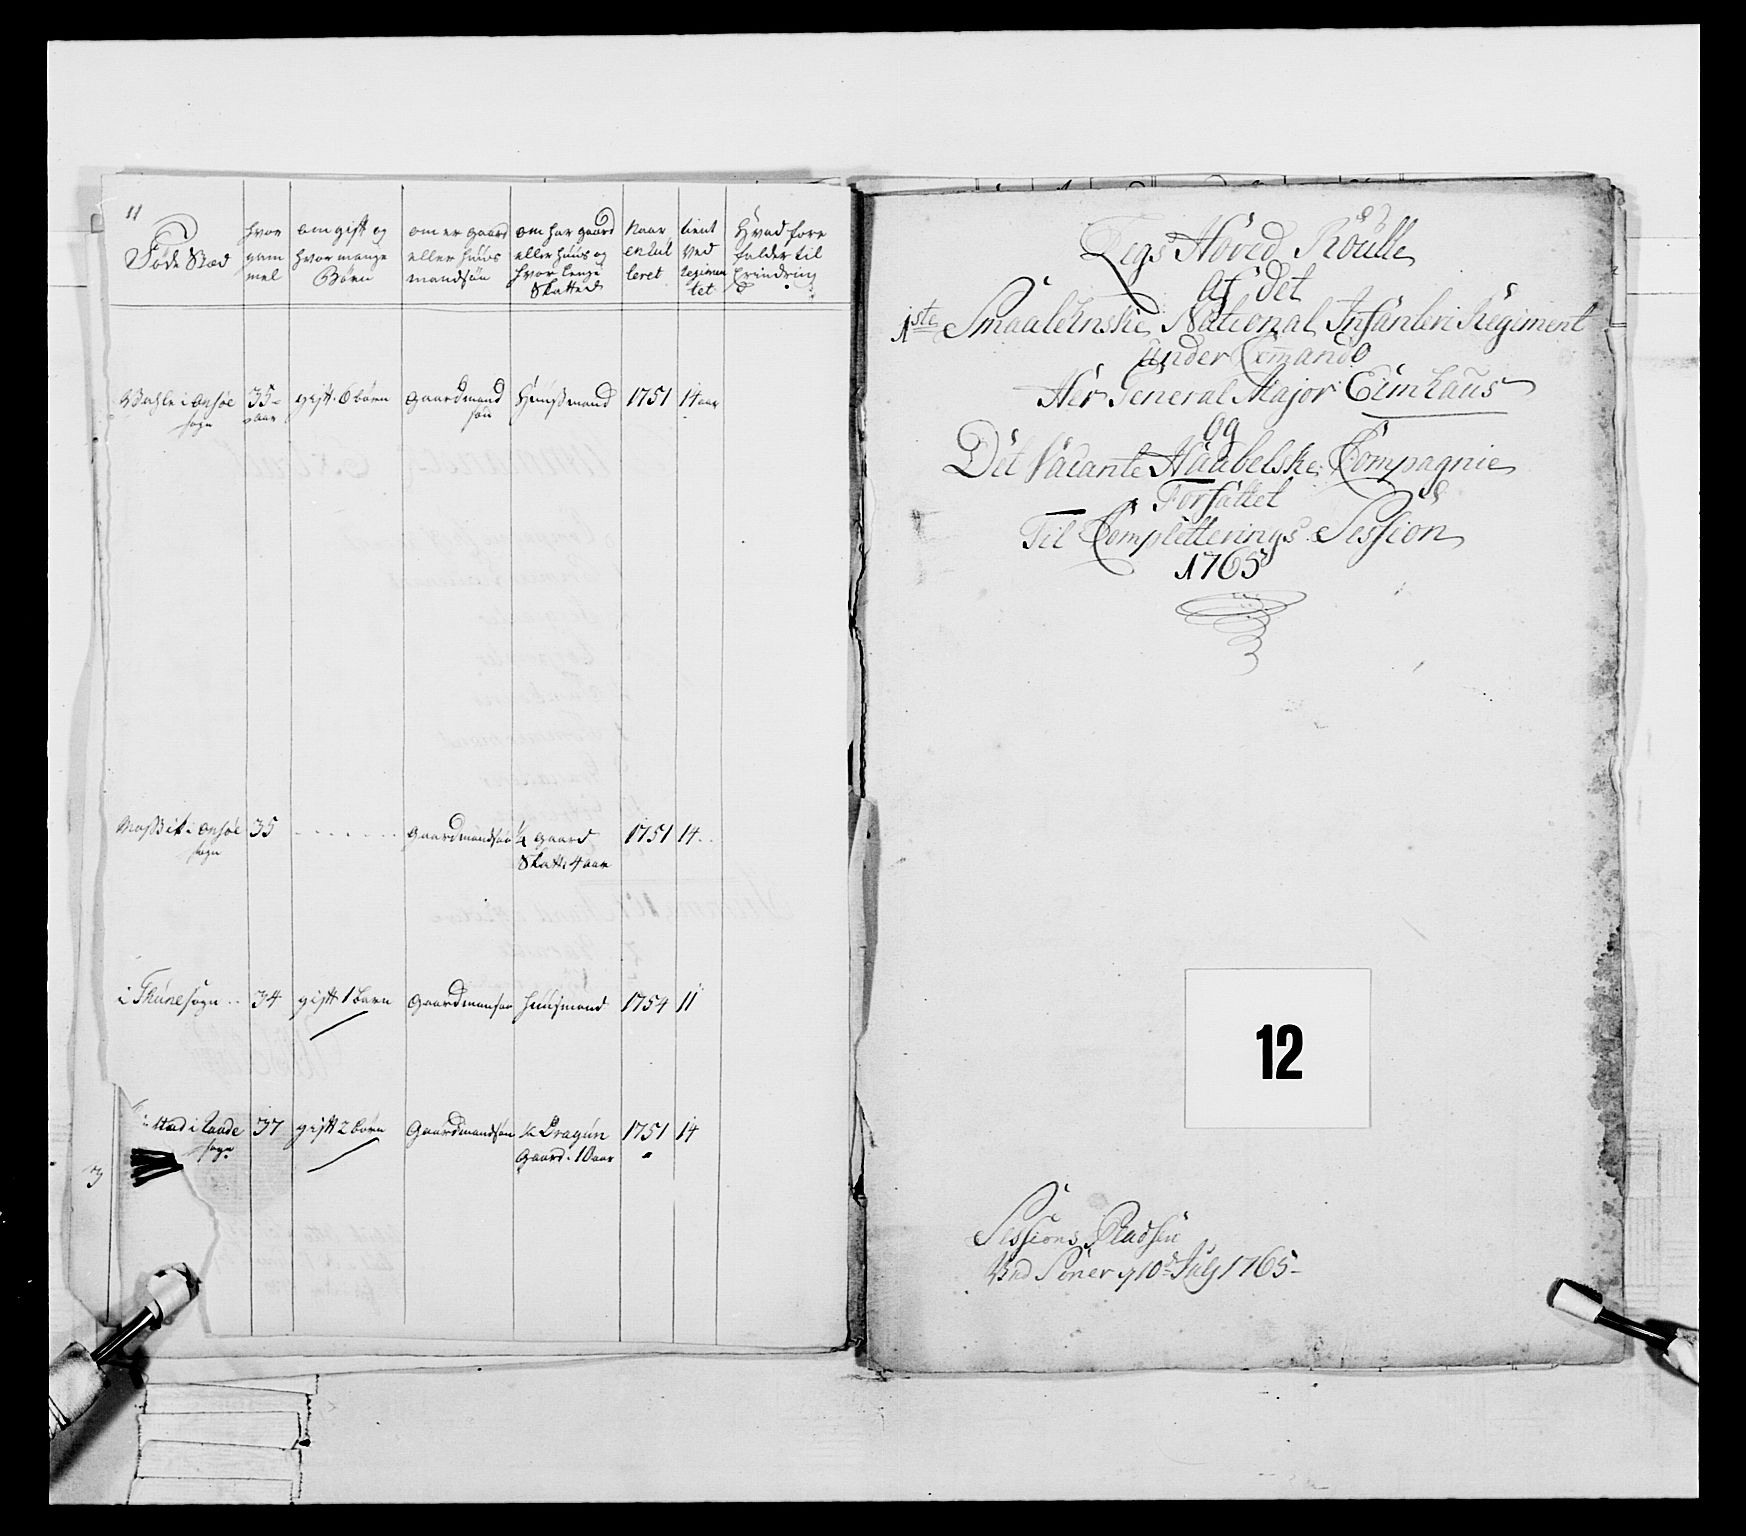 11
Föde Stæd
hvor gam mel
om gift og hvor mange Börn
om er gaard eller huus mandsön
om har gaard eller huus og hvor lenge Skatted
Naar enrul leret
tient ved Regimen tet
Hvad fore falder til Erindring
i Onsöe sogn
35 aar
gift 6 börn
gaardmand sön
Huusmand
1751
14 aar
i Onsöe sogn
35
gaardmandsön
¼ gaard Skatt. 4 aar
1751
14
i Thune sogn
34
gift 1 barn
gaardmansön
huusmand
1754
11
stad i Raade sogn
37
gift 2 börn
Gaardmandsön
Dragun Gaard. 10 aar
1751
14
3
Legs Hoved Roulle
Af det
1ste Smaalehnske National Infanteri Regiment
under Comando
Her General Major Eimhaus
og
Det Vacante Haabelske Compagnie
Forfattet
Til Completterings Session
1765
12
Sessions Stadsen
Ved Soner d 10de July 1765